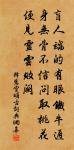 盲人端的有眼鐵牛通
身無骨不信問取桃花
便見靈雲敗闕